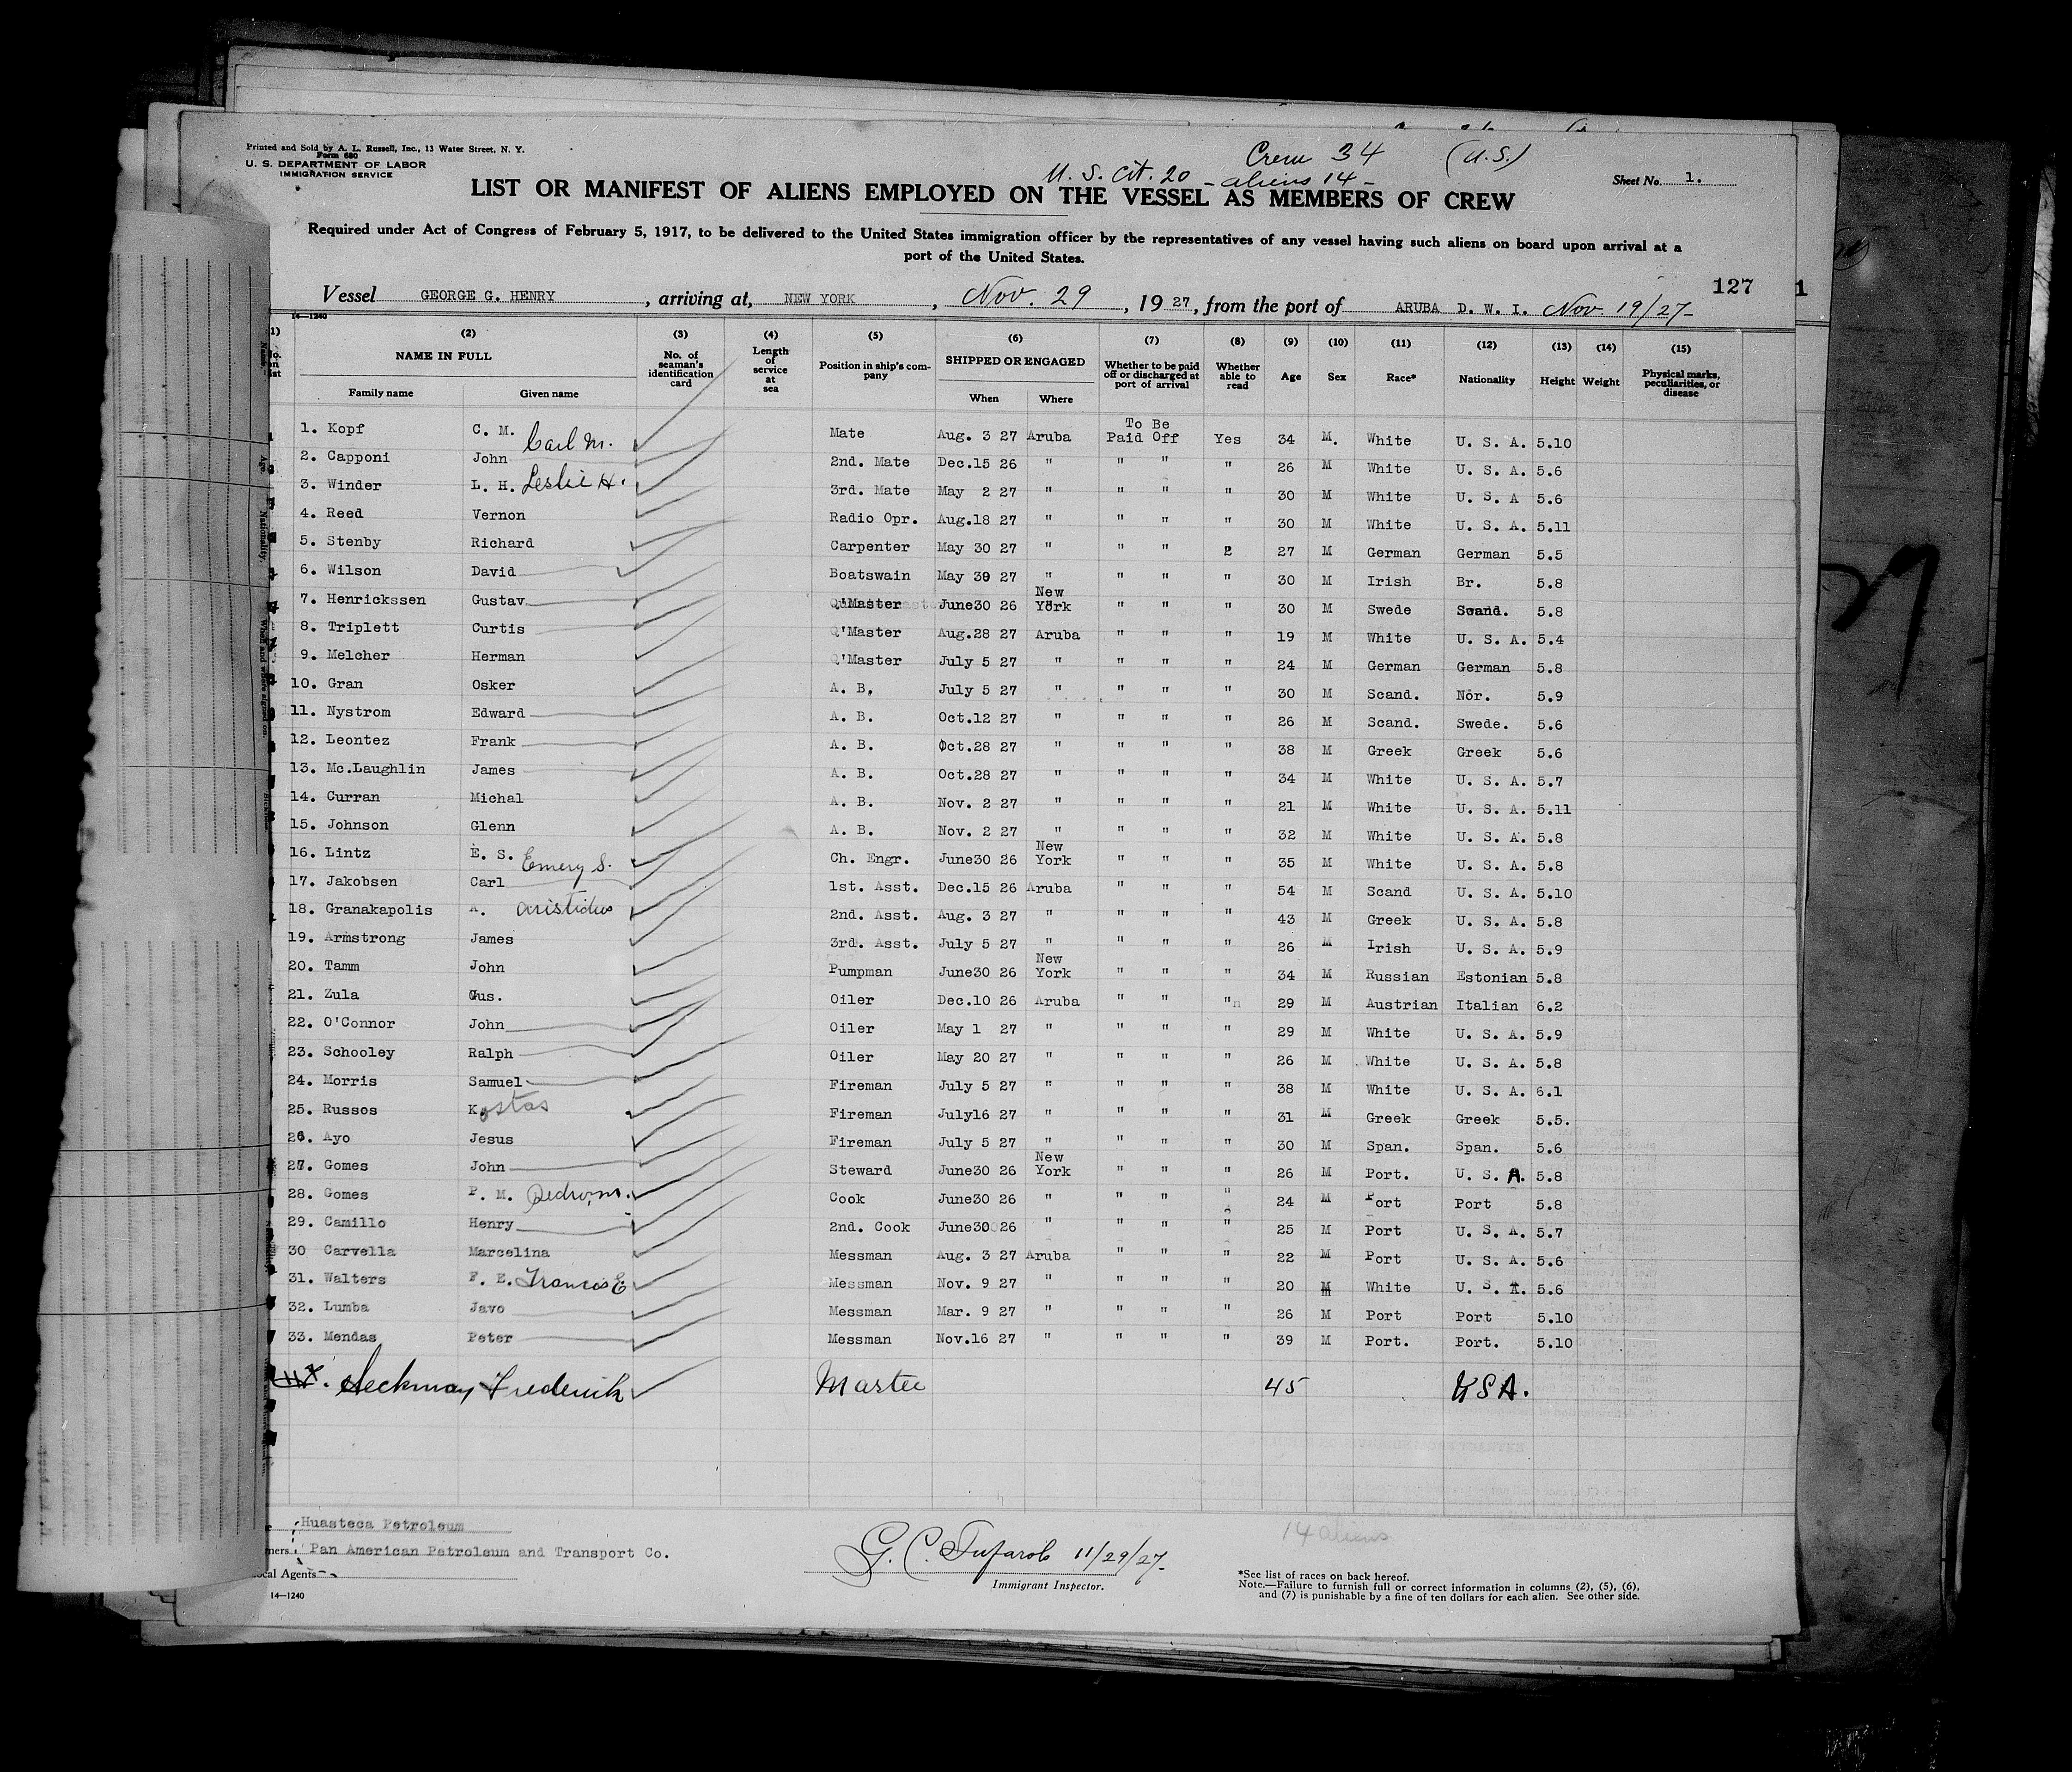 Printed and Sold by A. L. Russell, Inc., 13 Water Street, N. Y.
Form 680
U. S. DEPARTMENT OF LABOR
IMMIGRATION SERVICE
Crew 34 (U.S.)
U. S. Cit. 20 - aliens 14 -
Sheet No. 1.
LIST OR MANIFEST OF ALIENS EMPLOYED ON THE VESSEL AS MEMBERS OF CREW
Required under Act of Congress of February 5, 1917, to be delivered to the United States immigration officer by the representatives of any vessel having such aliens on board upon arrival at a
port of the United States.
127 1
Vessel GEORGE G. HENRY, arriving at, NEW YORK, Nov. 29, 1927, from the port of ARUBA D. W. I. Nov 19/27-
14—1240
(2) (3) (4) (5) (6) (7) (8) (9) (10) (11) (12) (13) (14) (15)
NAME IN FULL
Family name Given name
No. of seaman's identification card
Length of service at sea
Position in ship's company
SHIPPED OR ENGAGED
When Where
Whether to be paid off or discharged at port of arrival
Whether able to read
Age Sex Race* Nationality Height Weight
Physical marks, peculiarities, or disease
1. Kopf C. M. Carl M. Mate Aug. 3 27 Aruba To Be Paid Off Yes 34 M. White U. S. A. 5.10
2. Capponi John 2nd. Mate Dec.15 26 " " " " 26 M White U. S. A. 5.6
3. Winder L. H. Leslie H. 3rd. Mate May 2 27 " " " " 30 M White U. S. A 5.6
4. Reed Vernon Radio Opr. Aug.18 27 " " " " 30 M White U. S. A. 5.11
5. Stenby Richard Carpenter May 30 27 " " " 27 M German German 5.5
6. Wilson David Boatswain May 30 27 " " " " 30 M Irish Br. 5.8
7. Henrickssen Gustav Q'Master June30 26 New York " " " 30 M Swede Scand. 5.8
8. Triplett Curtis Q'Master Aug.28 27 Aruba " " " 19 M White U. S. A. 5.4
9. Melcher Herman Q'Master July 5 27 " " " " 24 M German German 5.8
10. Gran Osker A. B. July 5 27 " " " " 30 M Scand. Nor. 5.9
11. Nystrom Edward A. B. Oct.12 27 " " " " 26 M Scand. Swede. 5.6
12. Leontez Frank A. B. Oct.28 27 " " " " 38 M Greek Greek 5.6
13. Mc.Laughlin James A. B. Oct.28 27 " " " " 34 M White U. S. A. 5.7
14. Curran Michal A. B. Nov. 2 27 " " " " 21 M White U. S. A. 5.11
15. Johnson Glenn A. B. Nov. 2 27 " " " " 32 M White U. S. A. 5.8
16. Lintz E. S. Emery S. Ch. Engr. June30 26 New York " " " 35 M White U. S. A. 5.8
17. Jakobsen Carl 1st. Asst. Dec.15 26 Aruba " " " 54 M Scand U. S. A. 5.10
18. Granakapolis A. Aristides 2nd. Asst. Aug. 3 27 " " " " 43 M Greek U. S. A. 5.8
19. Armstrong James 3rd. Asst. July 5 27 " " " " 26 M Irish U. S. A. 5.9
20. Tamm John Pumpman June30 26 New York " " " 34 M Russian Estonian 5.8
21. Zula Gus. Oiler Dec.10 26 Aruba " " " 29 M Austrian Italian 6.2
22. O'Connor John Oiler May 1 27 " " " " 29 M White U. S. A. 5.9
23. Schooley Ralph Oiler May 20 27 " " " " 26 M White U. S. A. 5.8
24. Morris Samuel Fireman July 5 27 " " " " 38 M White U. S. A. 6.1
25. Russos Kostas Fireman July16 27 " " " " 31 M Greek Greek 5.5.
26. Ayo Jesus Fireman July 5 27 " " " " 30 M Span. Span. 5.6
27. Gomes John Steward June30 26 New York " " " 26 M Port. U. S. A. 5.8
28. Gomes P. M. Pedro, M. Cook June30 26 " " " " 24 M Port Port 5.8
29. Camillo Henry 2nd. Cook June30 26 " " " " 25 M Port U. S. A. 5.7
30 Carvella Marcelina Messman Aug. 3 27 Aruba " " " 22 M Port U. S. A. 5.6
31. Walters F. E. Francis E. Messman Nov. 9 27 " " " " 20 M White U. S. A. 5.6
32. Lumba Javo Messman Mar. 9 27 " " " " 26 M Port Port 5.10
33. Mendas Peter Messman Nov.16 27 " " " " 39 M Port. Port. 5.10
Frederick Master 45 USA.
Huasteca Petroleum
Pan American Petroleum and Transport Co.
Local Agents
14—1240
11/29/27-
Immigrant Inspector.
14 aliens
*See list of races on back hereof.
Note.—Failure to furnish full or correct information in columns (2), (5), (6),
and (7) is punishable by a fine of ten dollars for each alien. See other side.